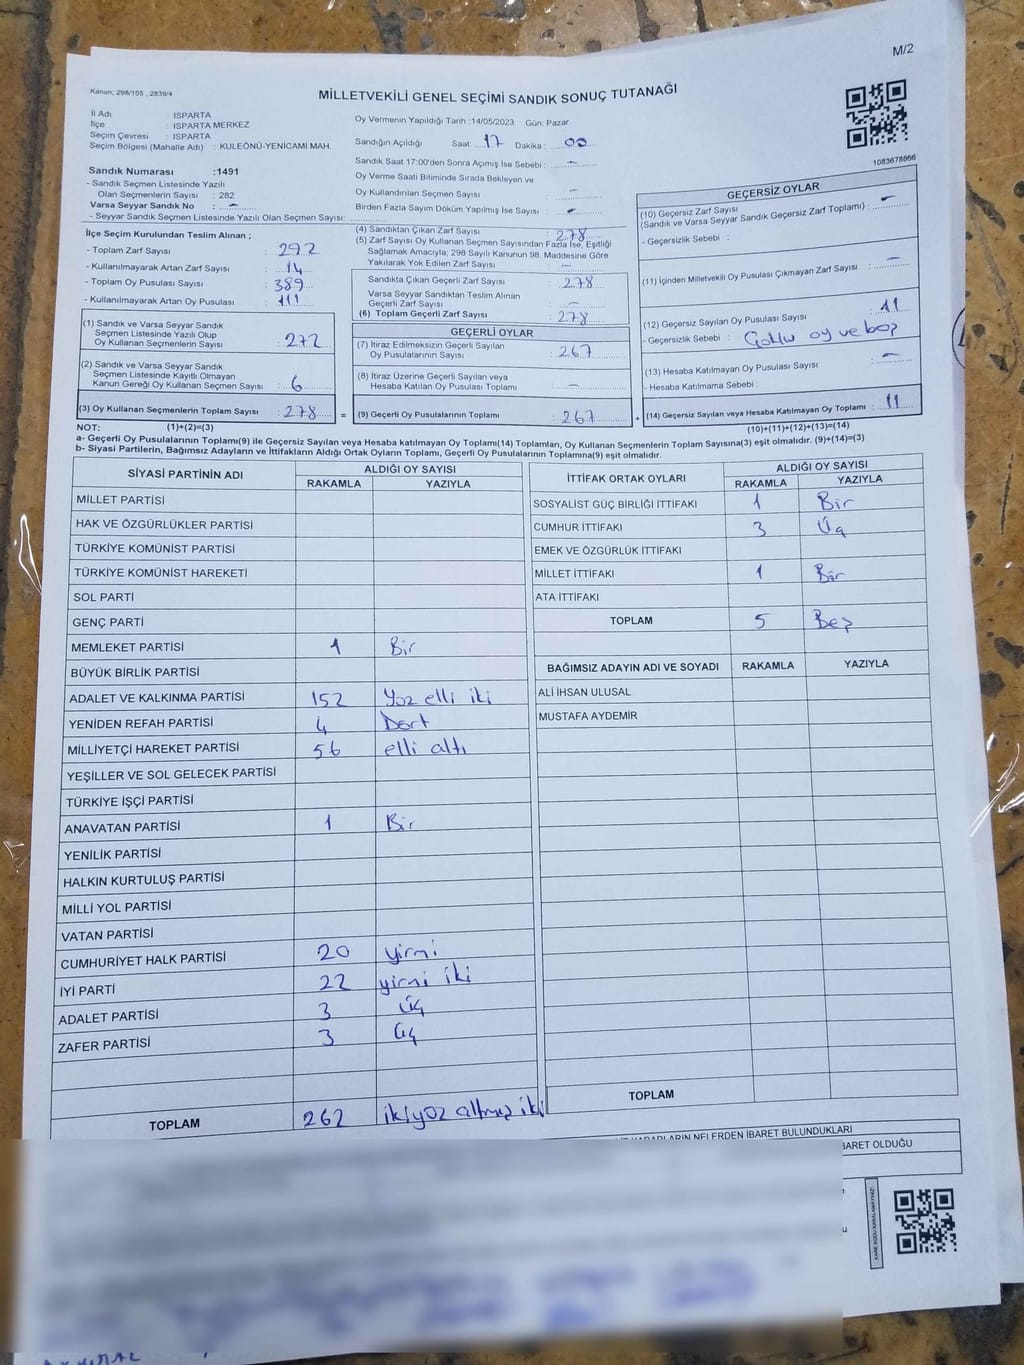 M/2
Kanun; 298/105 , 2839/4
MİLLETVEKİLİ GENEL SEÇİMİ SANDIK SONUÇ TUTANAĞI
İl Adı : ISPARTA
İlçe : ISPARTA MERKEZ
Seçim Çevresi : ISPARTA
Seçim Bölgesi (Mahalle Adı) : KULEÖNÜ-YENİCAMİ MAH.
Sandık Numarası :1491
- Sandık Seçmen Listesinde Yazılı
Olan Seçmenlerin Sayısı : 282
Varsa Seyyar Sandık No : -
- Seyyar Sandık Seçmen Listesinde Yazılı Olan Seçmen Sayısı:
Oy Vermenin Yapıldığı Tarih :14/05/2023 Gün: Pazar
Sandığın Açıldığı Saat: 17 Dakika : 00
Sandık Saat 17:00'den Sonra Açımış İse Sebebi : -
Oy Verme Saati Bitiminde Sırada Bekleyen ve
Oy Kullandırılan Seçmen Sayısı -
Birden Fazla Sayım Döküm Yapılmış İse Sayısı : -
1083678866
İlçe Seçim Kurulundan Teslim Alınan ;
- Toplam Zarf Sayısı : 292
- Kullanılmayarak Artan Zarf Sayısı : 14
- Toplam Oy Pusulası Sayısı : 389
- Kullanılmayarak Artan Oy Pusulası : 111
(1) Sandık ve Varsa Seyyar Sandık
Seçmen Listesinde Yazılı Olup
Oy Kullanan Seçmenlerin Sayısı : 272
(2) Sandık ve Varsa Seyyar Sandık
Seçmen Listesinde Kayıtlı Olmayan
Kanun Gereği Oy Kullanan Seçmen Sayısı : 6
(3) Oy Kullanan Seçmenlerin Toplam Sayısı : 278 =
(4) Sandıktan Çıkan Zarf Sayısı : 278
(5) Zarf Sayısı Oy Kullanan Seçmen Sayısından Fazla İse, Eşitliği
Sağlamak Amacıyla; 298 Sayılı Kanunun 98. Maddesine Göre
Yakılarak Yok Edilen Zarf Sayısı : -
Sandıkta Çıkan Geçerli Zarf Sayısı : 278
Varsa Seyyar Sandıktan Teslim Alınan
Geçerli Zarf Sayısı : -
(6) Toplam Geçerli Zarf Sayısı : 278
GEÇERLİ OYLAR
(7) İtiraz Edilmeksizin Geçerli Sayılan
Oy Pusulalarının Sayısı : 267
(8) İtiraz Üzerine Geçerli Sayılan veya
Hesaba Katılan Oy Pusulası Toplamı : -
(9) Geçerli Oy Pusulalarının Toplamı : 267 +
GEÇERSİZ OYLAR
(10) Geçersiz Zarf Sayısı
(Sandık ve Varsa Seyyar Sandık Geçersiz Zarf Toplamı) : -
- Geçersizlik Sebebi :
(11) İçinden Milletvekili Oy Pusulası Çıkmayan Zarf Sayısı : -
(12) Geçersiz Sayılan Oy Pusulası Sayısı : 11
- Geçersizlik Sebebi : Çoklu oy ve boş
(13) Hesaba Katılmayan Oy Pusulası Sayısı : -
- Hesaba Katılmama Sebebi :
(14) Geçersiz Sayılan veya Hesaba Katılmayan Oy Toplamı : 11
NOT: (1)+(2)=(3) (10)+(11)+(12)+(13)=(14)
a- Geçerli Oy Pusulalarının Toplamı(9) ile Geçersiz Sayılan veya Hesaba katılmayan Oy Toplamı(14) Toplamları, Oy Kullanan Seçmenlerin Toplam Sayısına(3) eşit olmalıdır. (9)+(14)=(3)
b- Siyasi Partilerin, Bağımsız Adayların ve İttifakların Aldığı Ortak Oyların Toplamı, Geçerli Oy Pusulalarının Toplamına(9) eşit olmalıdır.
SİYASİ PARTİNİN ADI ALDIĞI OY SAYISI
RAKAMLA YAZIYLA
MİLLET PARTİSİ
HAK VE ÖZGÜRLÜKLER PARTİSİ
TÜRKİYE KOMÜNİST PARTİSİ
TÜRKİYE KOMÜNİST HAREKETİ
SOL PARTİ
GENÇ PARTİ
MEMLEKET PARTİSİ 1 Bir
BÜYÜK BİRLİK PARTİSİ
ADALET VE KALKINMA PARTİSİ 152 Yüz elli iki
YENİDEN REFAH PARTİSİ 4 Dört
MİLLİYETÇİ HAREKET PARTİSİ 56 elli altı
YEŞİLLER VE SOL GELECEK PARTİSİ
TÜRKİYE İŞÇİ PARTİSİ
ANAVATAN PARTİSİ 1 Bir
YENİLİK PARTİSİ
HALKIN KURTULUŞ PARTİSİ
MİLLİ YOL PARTİSİ
VATAN PARTİSİ
CUMHURİYET HALK PARTİSİ 20 yirmi
İYİ PARTİ 22 yirmi iki
ADALET PARTİSİ 3 Üç
ZAFER PARTİSİ 3 Üç
TOPLAM 262 ikiyüz altmış iki
İTTİFAK ORTAK OYLARI ALDIĞI OY SAYISI
RAKAMLA YAZIYLA
SOSYALİST GÜÇ BİRLİĞİ İTTİFAKI 1 Bir
CUMHUR İTTİFAKI 3 Üç
EMEK VE ÖZGÜRLÜK İTTİFAKI
MİLLET İTTİFAKI 1 Bir
ATA İTTİFAKI
TOPLAM 5 Beş
BAĞIMSIZ ADAYIN ADI VE SOYADI RAKAMLA YAZIYLA
ALİ İHSAN ULUSAL
MUSTAFA AYDEMİR
TOPLAM
KARARLARIN NELERDEN İBARET BULUNDUKLARI
İBARET OLDUĞU
KARE KODU KARALAMAYINIZ!